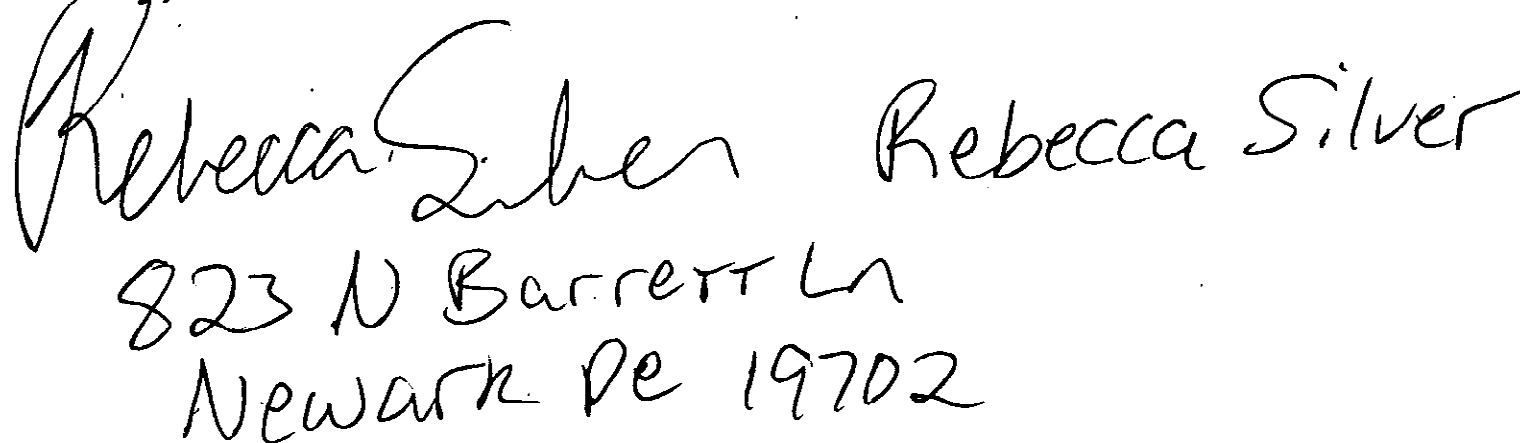 Rebecca Silver Rebecca Silver
823 N Barrett Ln
Newark De 19702